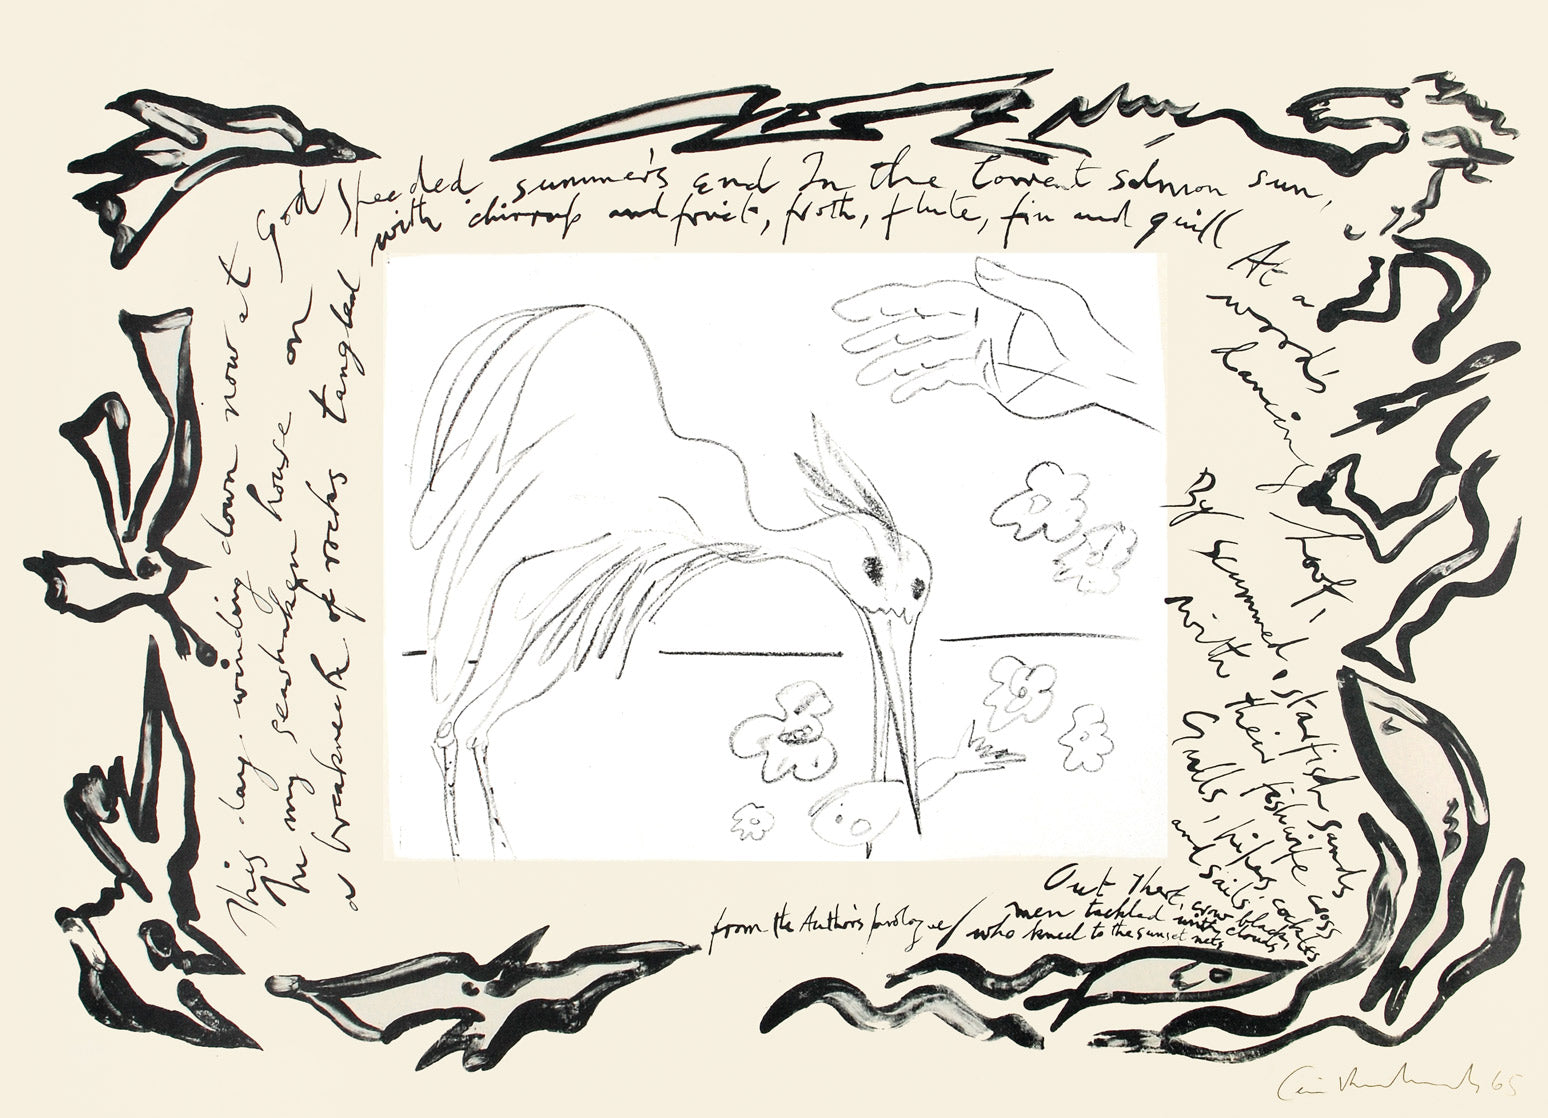 This day winding down now at
God speeded summer's end In the torrent salmon sun,
In my seashaken house on
a breakneck of rocks tangled
with chirrup and fruit, froth, flute, fin and quill
At a
wood's
dancing hoof,
By scummed, starfish sands
with their fishwife cross
Gulls, pipers, cockles
and sails,
Out there, crow black,
men tackled with clouds
who kneel to the sunset nets
from the Author's prologue/
Ceri Richards 65